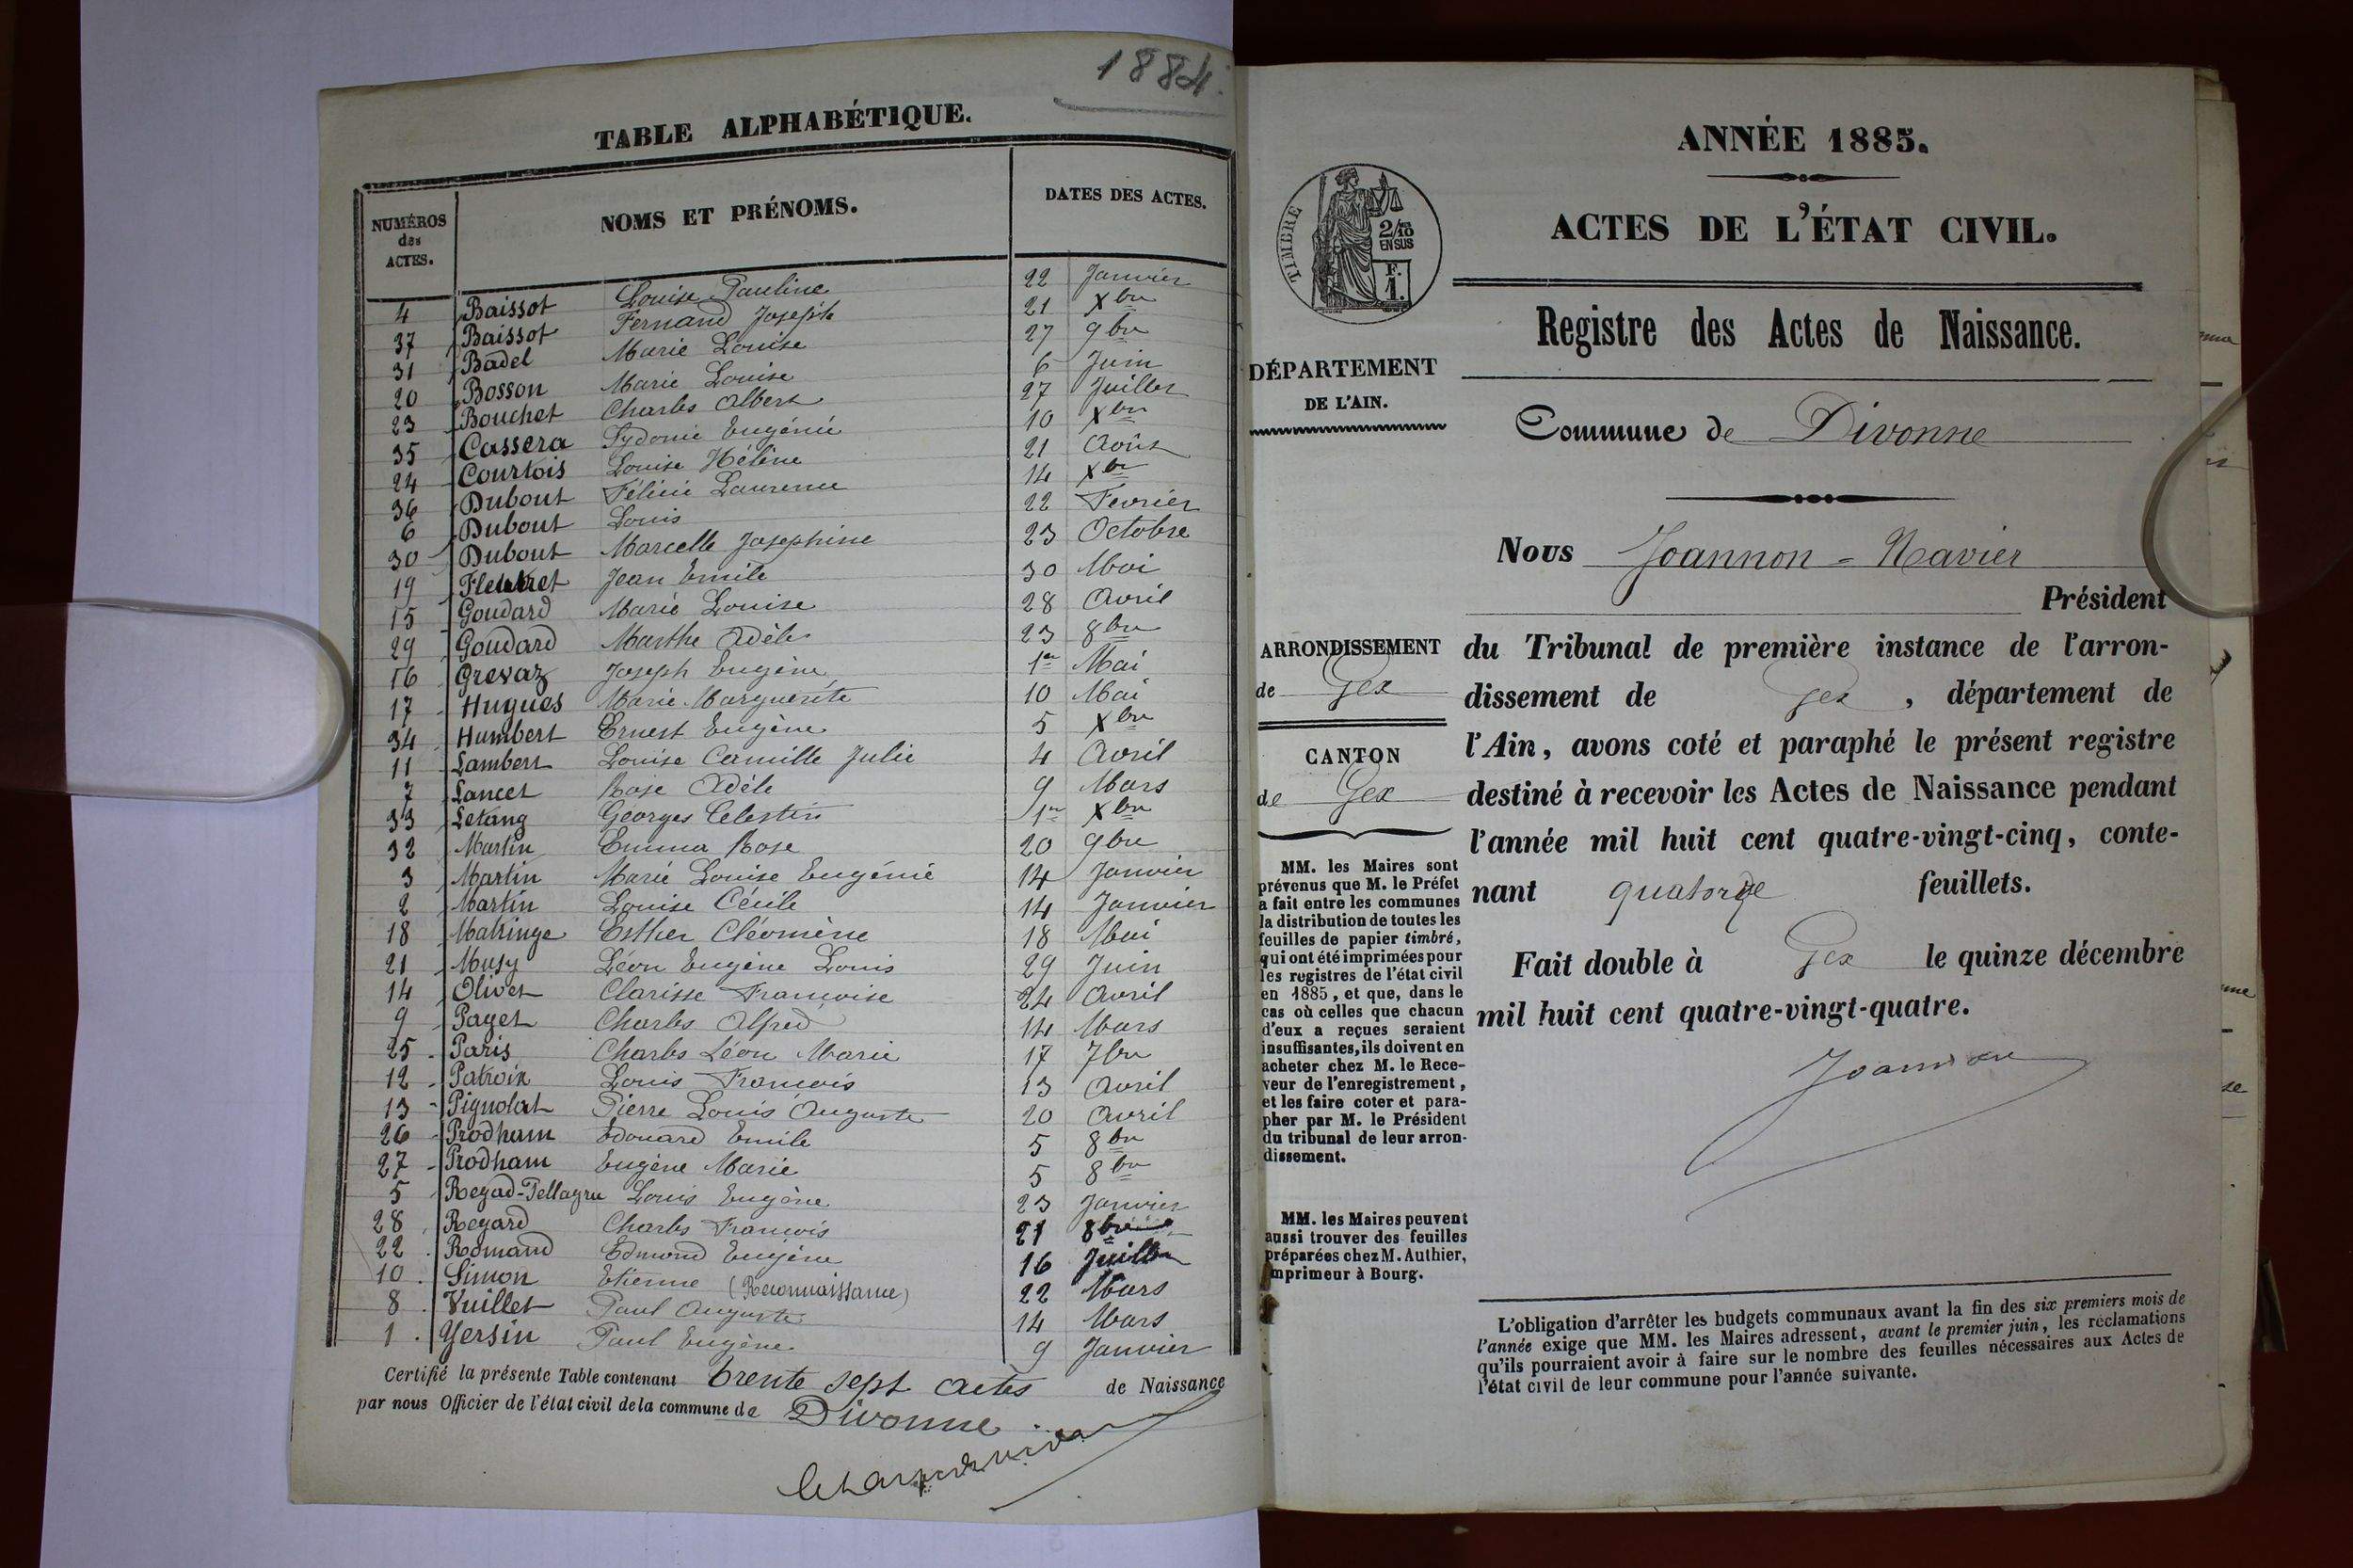 1884.
TABLE ALPHABÉTIQUE.
NUMÉROS des ACTES. NOMS ET PRÉNOMS. DATES DES ACTES.
4 Baissot Louise Pauline 22 Janvier
37 Baissot Fernand Joseph 21 Xbre
31 Badel Marie Louise 27 9bre
20 Bosson Marie Louise 6 Juin
23 Bouchet Charles Albert 27 Juillet
35 Cassera Sydonie Eugénie 10 Xbre
24 Courtois Louise Hélène 21 Août
36 Dubout Félicie Laurence 14 Xbre
6 Dubout Louis 22 Fevrier
30 Dubout Marcelle Josephine 23 Octobre
19 Fleutret Jean Emile 30 Mai
15 Goudard Marie Louise 28 Avril
29 Goudard Marthe Adèle 23 8bre
16 Grevaz Joseph Eugène 1er Mai
17 Hugues Marie Marguerite 10 Mai
34 Humbert Ernest Eugène 5 Xbre
11 Lambert Louise Camille Julie 4 Avril
7 Lancet Rose Adèle 9 Mars
33 Letang Georges Celestin 1er Xbre
32 Martin Emma Rose 20 9bre
3 Martin Marie Louise Eugénie 14 Janvier
2 Martin Louise Cécile 14 Janvier
18 Matringe Esther Cléomène 18 Mai
21 Musy Léon Eugène Louis 29 Juin
14 Olivet Clarisse Françoise 24 Avril
9 Paget Charles Alfred 14 Mars
25 Paris Charles Léon Marie 17 7bre
12 Patroix Louis François 13 Avril
13 Pignolat Pierre Louis Auguste 20 Avril
26 Prodham Edouard Emile 5 8bre
27 Prodham Eugène Marie 5 8bre
5 Regad-Pellagru Louis Eugène 23 Janvier
28 Regard Charles François 21 8bre
22 Romand Edmond Eugène 16 Juillet
10 Simon Etienne (Reconnaissance) 22 Mars
8 Vuillet Paul Auguste 14 Mars
1 Yersin Paul Eugène 9 Janvier
Certifié la présente Table contenant trente sept actes de Naissance
par nous Officier de l'état civil de la commune de Divonne
ANNÉE 1885.
ACTES DE L'ÉTAT CIVIL.
TIMBRE
2/10
EN SUS
F.
1.
Registre des Actes de Naissance.
DÉPARTEMENT
DE L'AIN.
Commune de Divonne
Nous Joannon-Navier
Président
ARRONDISSEMENT
de Gex
CANTON
de Gex
du Tribunal de première instance de l'arron-
dissement de Gex, département de
l'Ain, avons coté et paraphé le présent registre
destiné à recevoir les Actes de Naissance pendant
l'année mil huit cent quatre-vingt-cinq, conte-
nant quatorze feuillets.
Fait double à Gex le quinze décembre
mil huit cent quatre-vingt-quatre.
Joannon
MM. les Maires sont
prévenus que M. le Préfet
a fait entre les communes
la distribution de toutes les
feuilles de papier timbré,
qui ont été imprimées pour
les registres de l'état civil
en 1885, et que, dans le
cas où celles que chacun
d'eux a reçues seraient
insuffisantes, ils doivent en
acheter chez M. le Rece-
veur de l'enregistrement,
et les faire coter et para-
pher par M. le Président
du tribunal de leur arron-
dissement.
MM. les Maires peuvent
aussi trouver des feuilles
préparées chez M. Authier,
imprimeur à Bourg.
L'obligation d'arrêter les budgets communaux avant la fin des six premiers mois de
l'année exige que MM. les Maires adressent, avant le premier juin, les réclamations
qu'ils pourraient avoir à faire sur le nombre des feuilles nécessaires aux Actes de
l'état civil de leur commune pour l'année suivante.